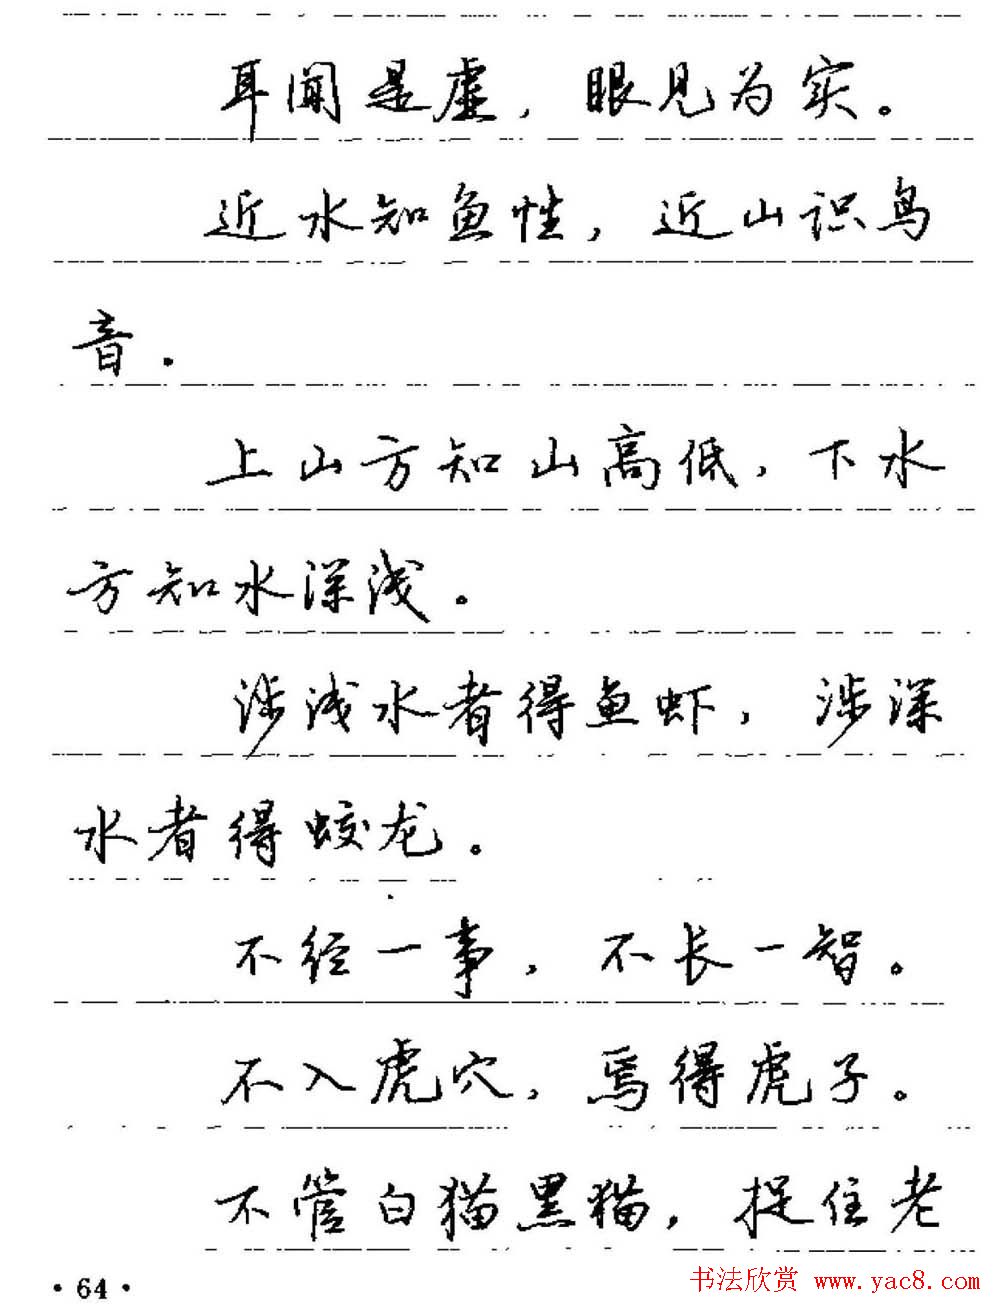 耳闻是虚，眼见为实。
近水知鱼性，近山识鸟
音。
上山方知山高低，下水
方知水深浅。
涉浅水者得鱼虾，涉深
水者得蛟龙。
不经一事，不长一智。
不入虎穴，焉得虎子。
不管白猫黑猫，捉住老
·64·
书法欣赏 www.yac8.com